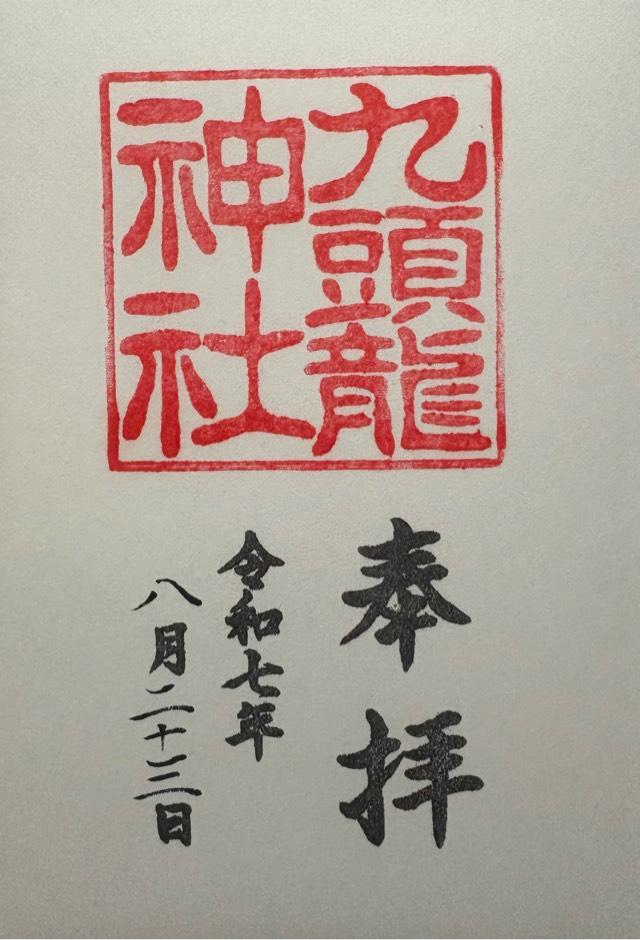 九頭龍
神社
奉拝
令和七年
八月二十三日